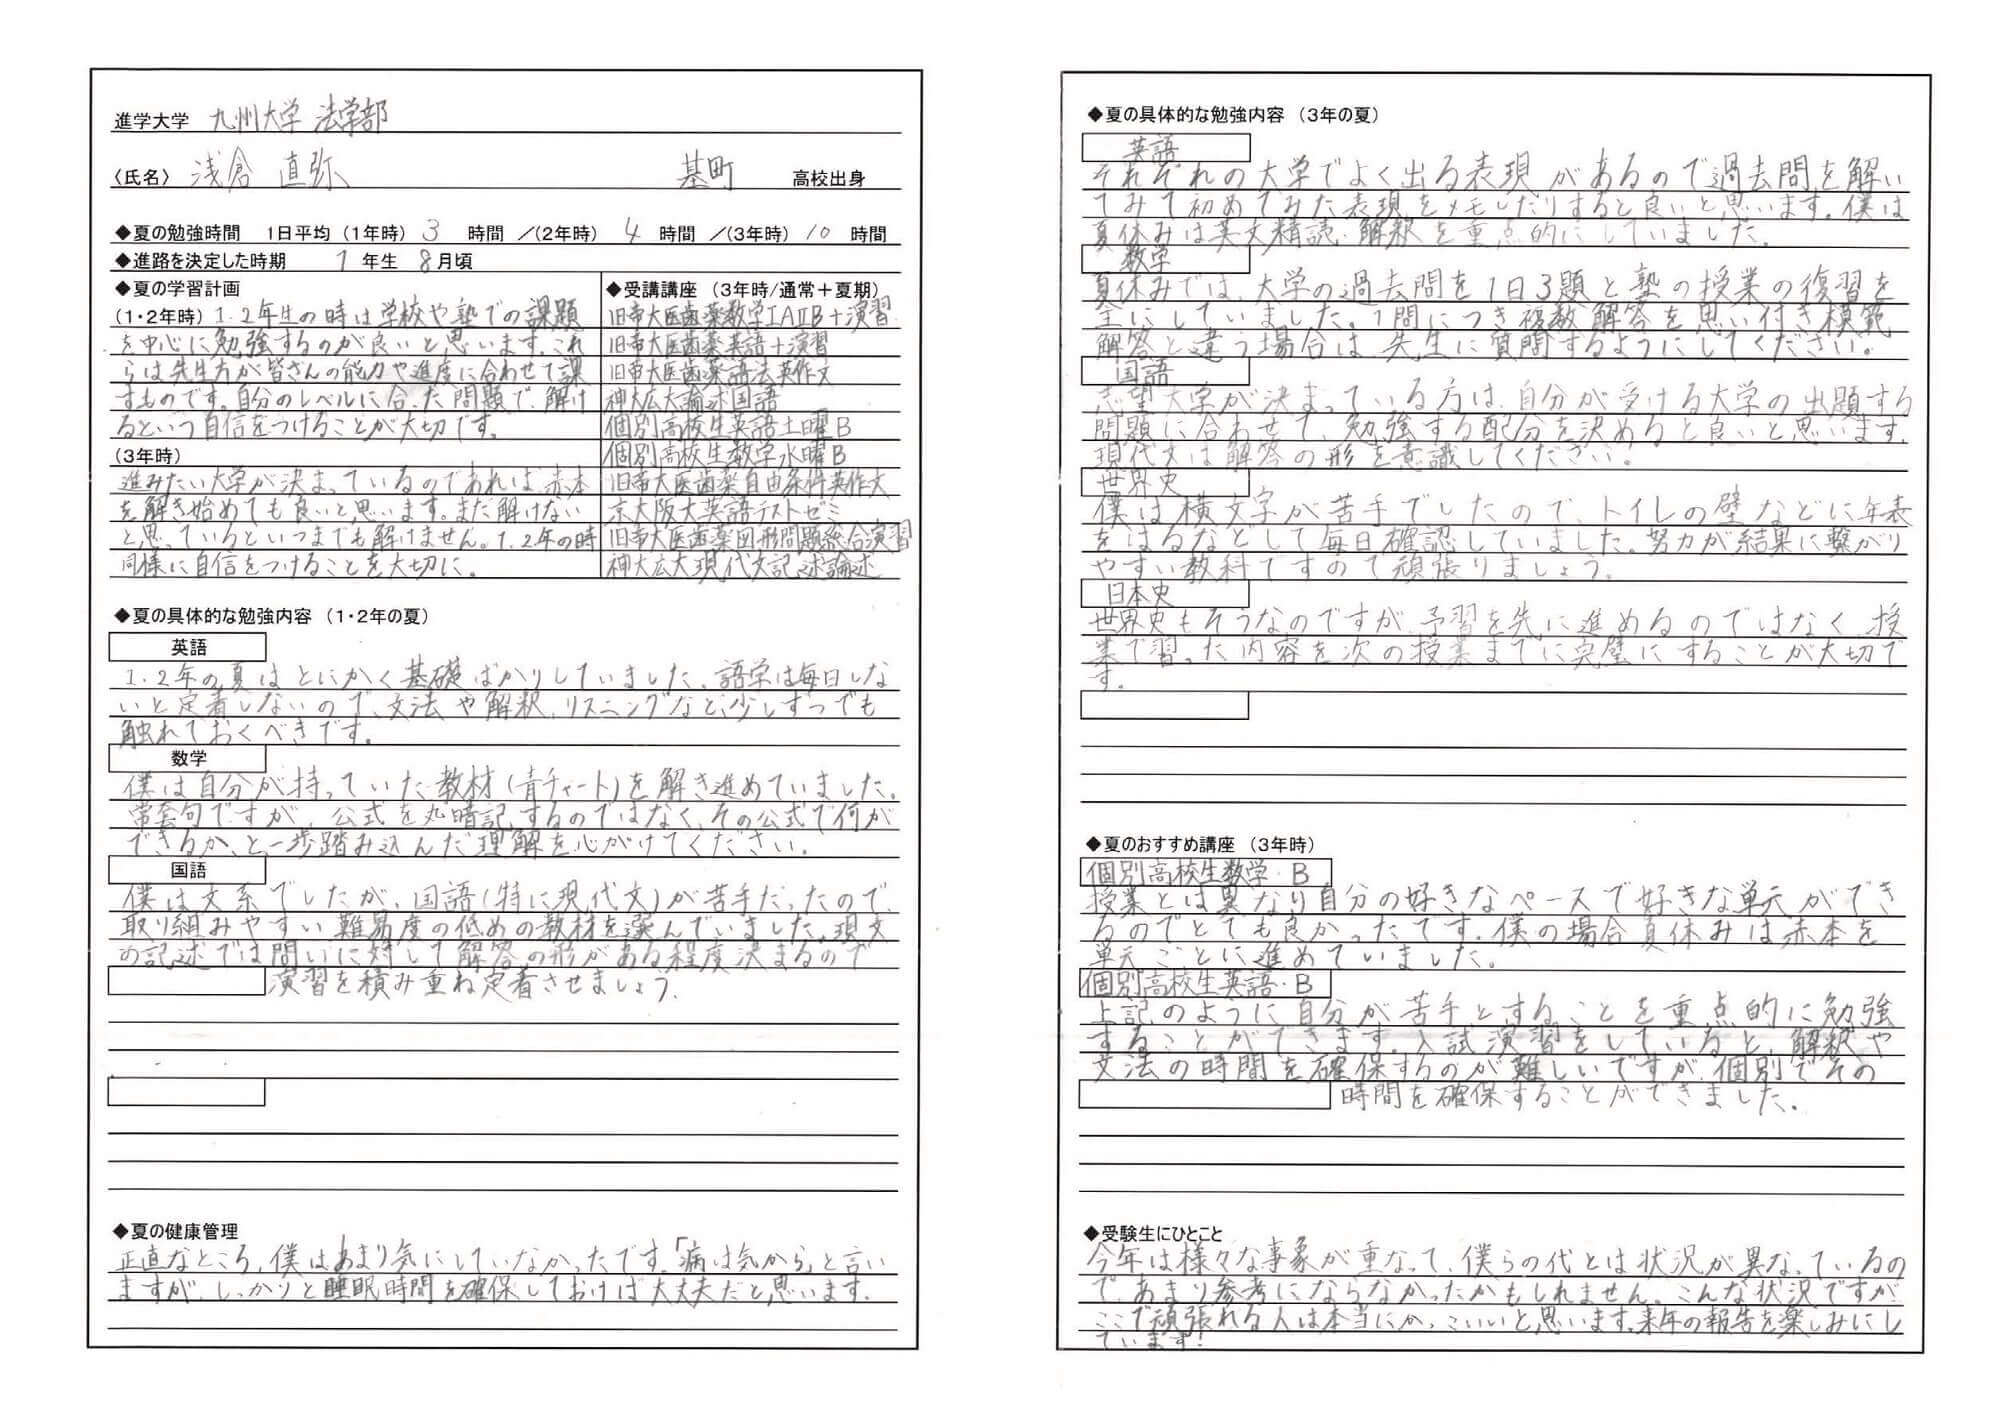 進学大学 九州大学 法学部
〈氏名〉 浅倉 直弥 基町 高校出身
◆夏の勉強時間 1日平均（1年時）3 時間 ／（2年時）4 時間 ／（3年時）10 時間
◆進路を決定した時期 1 年生 8 月頃
◆夏の学習計画
（1・2年時）1.2年生の時は学校や塾での課題
を中心に勉強するのが良いと思います。これ
らは先生方が皆さんの能力や進度に合わせて課
すものです。自分のレベルに合った問題で、解け
るという自信をつけることが大切です。
（3年時）
進みたい大学が決まっているのであれば、赤本
を解き始めても良いと思います。まだ解けない
と思っているといつまでも解けません。1.2年の時
同様に自信をつけることを大切に。
◆受講講座 （3年時/通常＋夏期）
旧帝大医歯薬数学ⅠAⅡB＋演習
旧帝大医歯薬英語＋演習
旧帝大医歯薬語法英作文
神大広大論述国語
個別高校生英語土曜B
個別高校生数学水曜B
旧帝大医歯薬自由条件英作文
京大阪大英語テストゼミ
旧帝大医歯薬図形問題総合演習
神大広大現代文記述論述
◆夏の具体的な勉強内容 （1・2年の夏）
英語
1.2年の夏はとにかく基礎ばかりしていました。語学は毎日しな
いと定着しないので、文法や解釈、リスニングなど、少しずつでも
触れておくべきです。
数学
僕は自分が持っていた教材(青チャート)を解き進めていました。
常套句ですが、公式を丸暗記するのではなく、その公式で何が
できるか、と一歩踏み込んだ理解を心がけてください。
国語
僕は文系でしたが、国語(特に現代文)が苦手だったので、
取り組みやすい難易度の低めの教材を選んでいました。現文
の記述では問いに対して解答の形がある程度決まるので
演習を積み重ね定着させましょう。
◆夏の健康管理
正直なところ、僕はあまり気にしていなかったです。「病は気から」と言い
ますが、しっかりと睡眠時間を確保しておけば大丈夫だと思います。
◆夏の具体的な勉強内容 （3年の夏）
英語
それぞれの大学でよく出る表現があるので過去問を解い
てみて初めてみた表現をメモしたりすると良いと思います。僕は
夏休みは英文精読・解釈を重点的にしていました。
数学
夏休みでは、大学の過去問を1日3題と塾の授業の復習を
全にしていました。1問につき複数解答を思い付き模範
解答と違う場合は、先生に質問するようにしてください。
国語
志望大学が決まっている方は、自分が受ける大学の出題する
問題に合わせて、勉強する配分を決めると良いと思います。
現代文は解答の形を意識してください。
世界史
僕は横文字が苦手でしたので、トイレの壁などに年表
をはるなどして毎日確認していました。努力が結果に繋がり
やすい教科ですので頑張りましょう。
日本史
世界史もそうなのですが、予習を先に進めるのではなく、授
業で習った内容を次の授業までに完璧にすることが大切で
す。
◆夏のおすすめ講座 （3年時）
個別高校生数学・B
授業とは異なり自分の好きなペースで好きな単元ができ
るのでとても良かったです。僕の場合夏休みは赤本を
単元ごとに進めていました。
個別高校生英語・B
上記のように自分が苦手とすることを重点的に勉強
することができます。入試演習をしていると、解釈や
文法の時間を確保するのが難しいですが、個別でその
時間を確保することができました。
◆受験生にひとこと
今年は様々な事象が重なって、僕らの代とは状況が異なっているの
で、あまり参考にならなかったかもしれません。こんな状況ですが、
ここで頑張れる人は本当にかっこいいと思います。来年の報告を楽しみにし
ています!